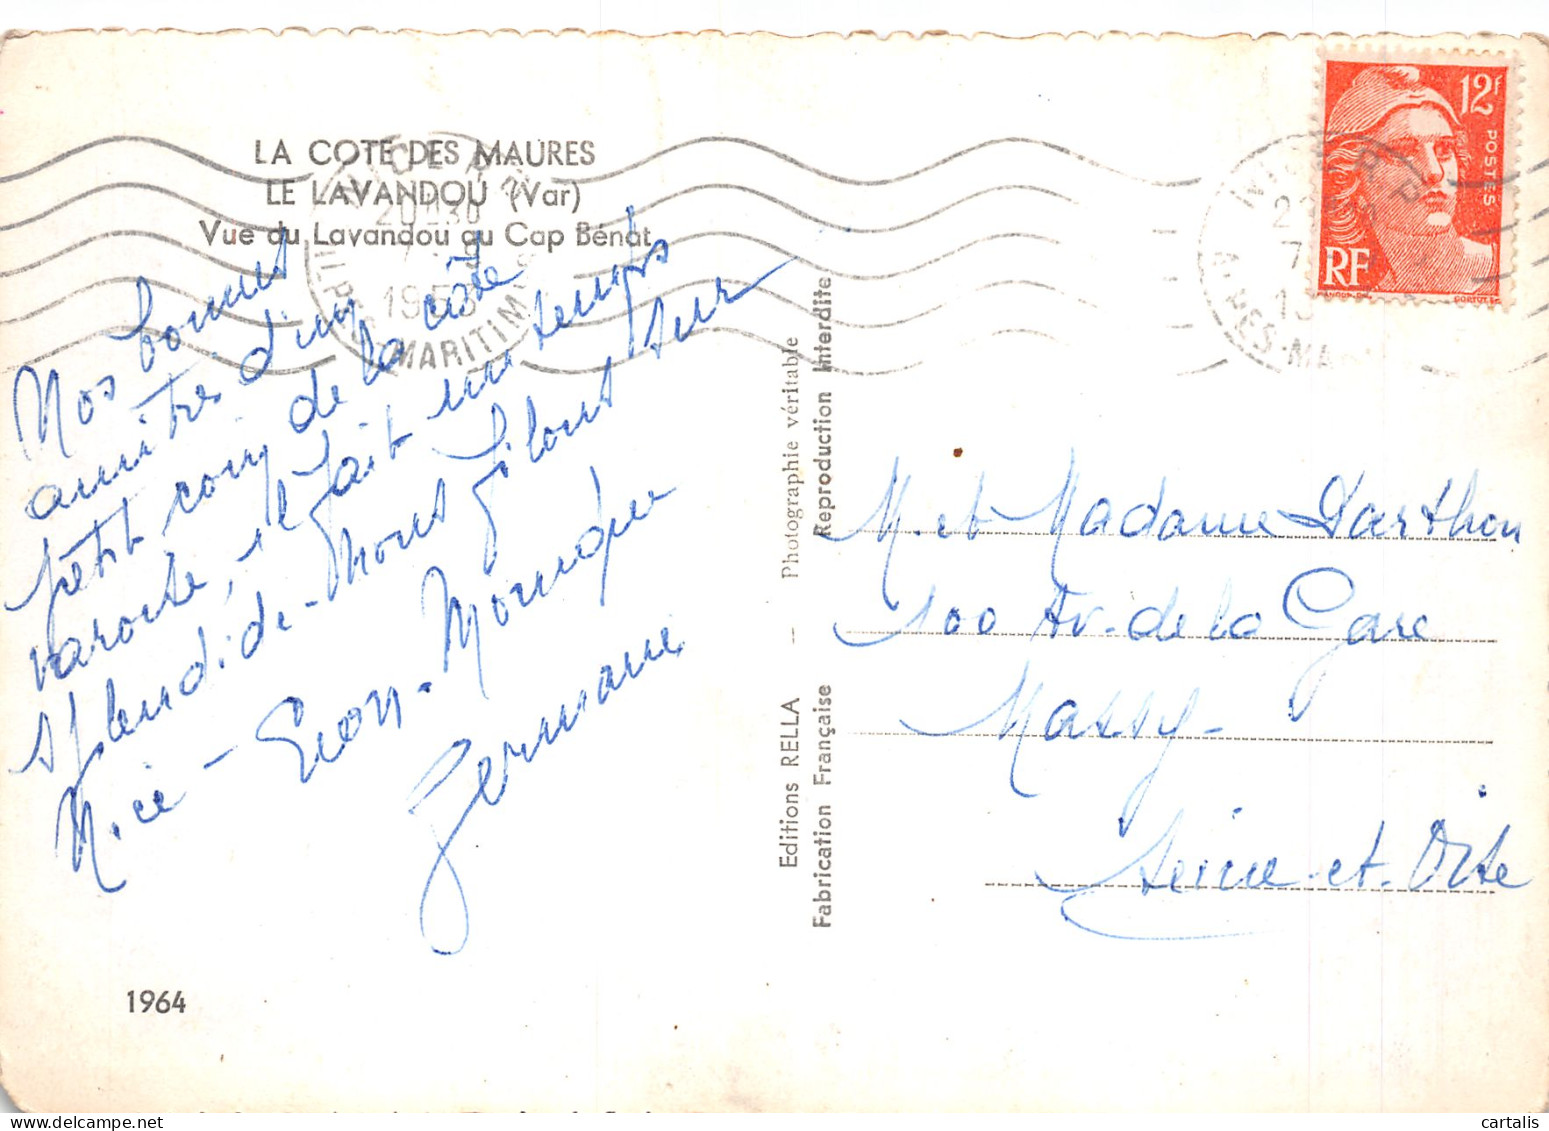 LA COTE DES MAURES
LE LAVANDOU (Var)
Vue du Lavandou au Cap Bénat
Nos bonnes
amitiés d'un
petit coin de la côte
varoise, il fait un temps
splendide - Nous filons sur
Nice - Monique
Germaine
1964
Editions RELLA — Photographie véritable
Fabrication Française Reproduction Interdite
NICE R.P.
20H30
7
1953
ALPES MARITIMES
12F
POSTES
RF
M. et Madame Darthon
100 Av. de la Gare
Massy -
Seine-et-Oise
cartalis